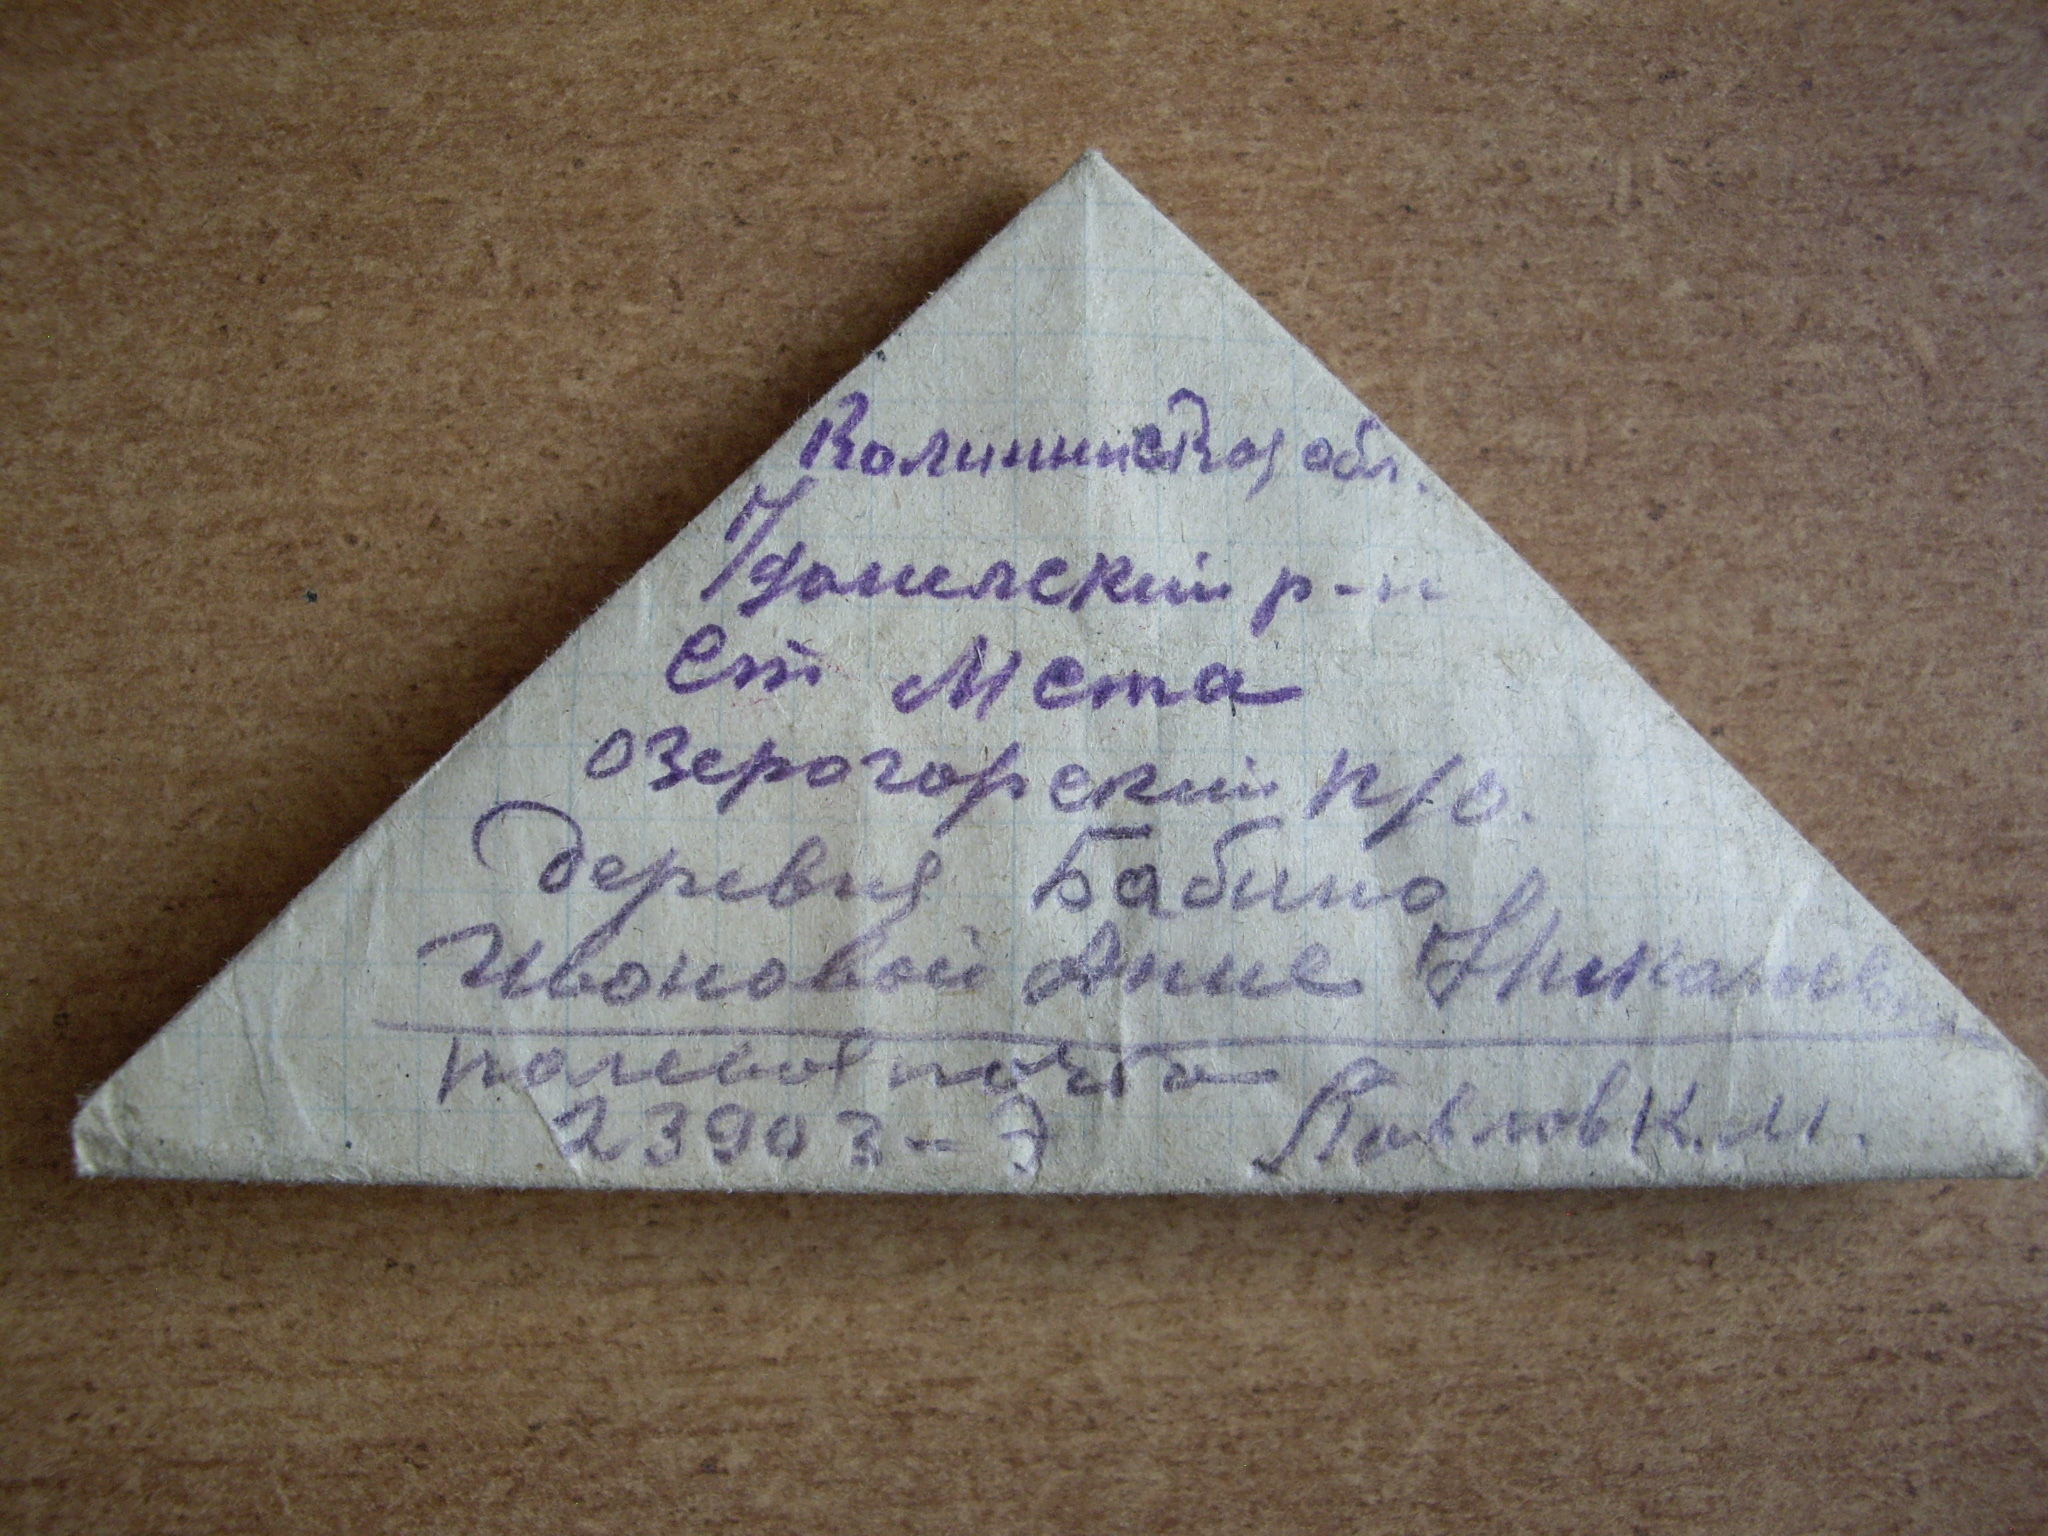 Калининская обл.
Удомельский р-н
Ст Мста
озерогорский п/о.
деревня Бабино
Ивоновой Анне Никалаевне
полевоя почта
23903-Э Павлов К.М.